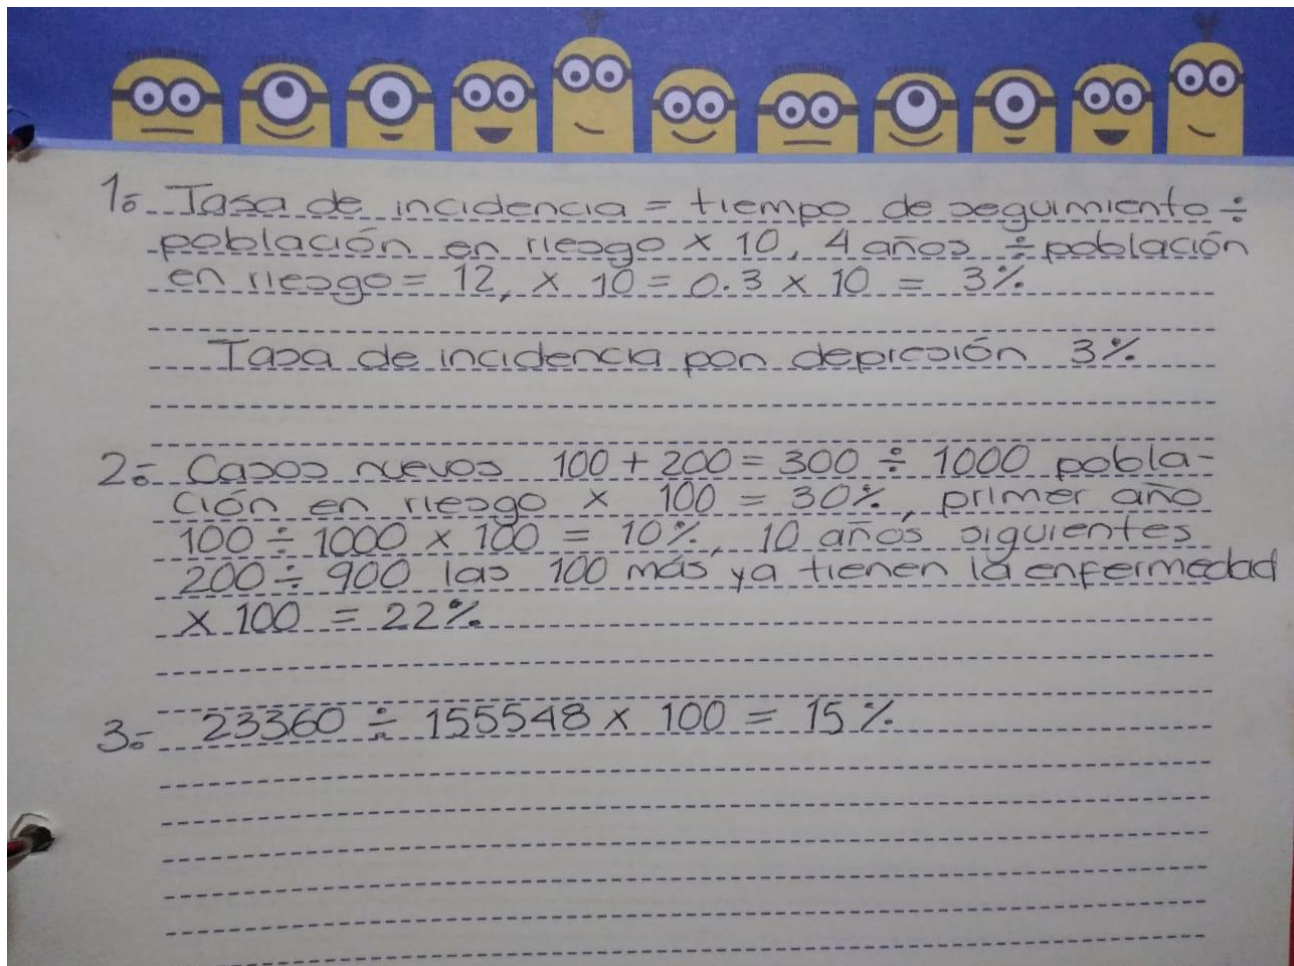 1.- Tasa de incidencia = tiempo de seguimiento ÷
población en riesgo × 10, 4 años ÷ población
en riesgo = 12, × 10 = 0.3 × 10 = 3%
Tasa de incidencia por depresión 3%
2.- Casos nuevos 100 + 200 = 300 ÷ 1000 pobla-
ción en riesgo × 100 = 30%, primer año
100 ÷ 1000 × 100 = 10%, 10 años siguientes
200 ÷ 900 las 100 más ya tienen la enfermedad
× 100 = 22%
3.- 23360 ÷ 155548 × 100 = 15%